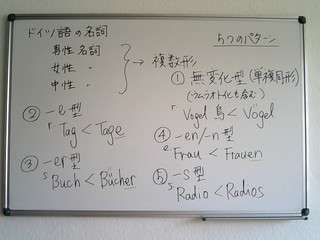 ドイツ語の名詞
男性名詞
女性 〃
中性 〃
→ 複数形
5つのパターン
① 無変化型 (単複同形)
(ウムラオト化も含む)
r Vogel 鳥 < Vögel
② -e型
r Tag < Tage
③ -er型
s Buch < Bücher
④ -en/-n型
e Frau < Frauen
⑤ -s型
s Radio < Radios